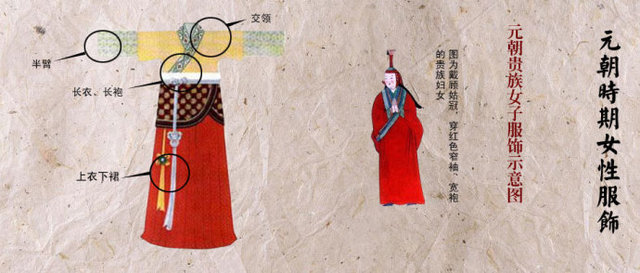 元朝時期女性服飾
元朝贵族女子服饰示意图
图为戴顾姑冠、穿红色窄袖、宽袍
的贵族妇女
交领
半臂
长衣、长袍
上衣下裙